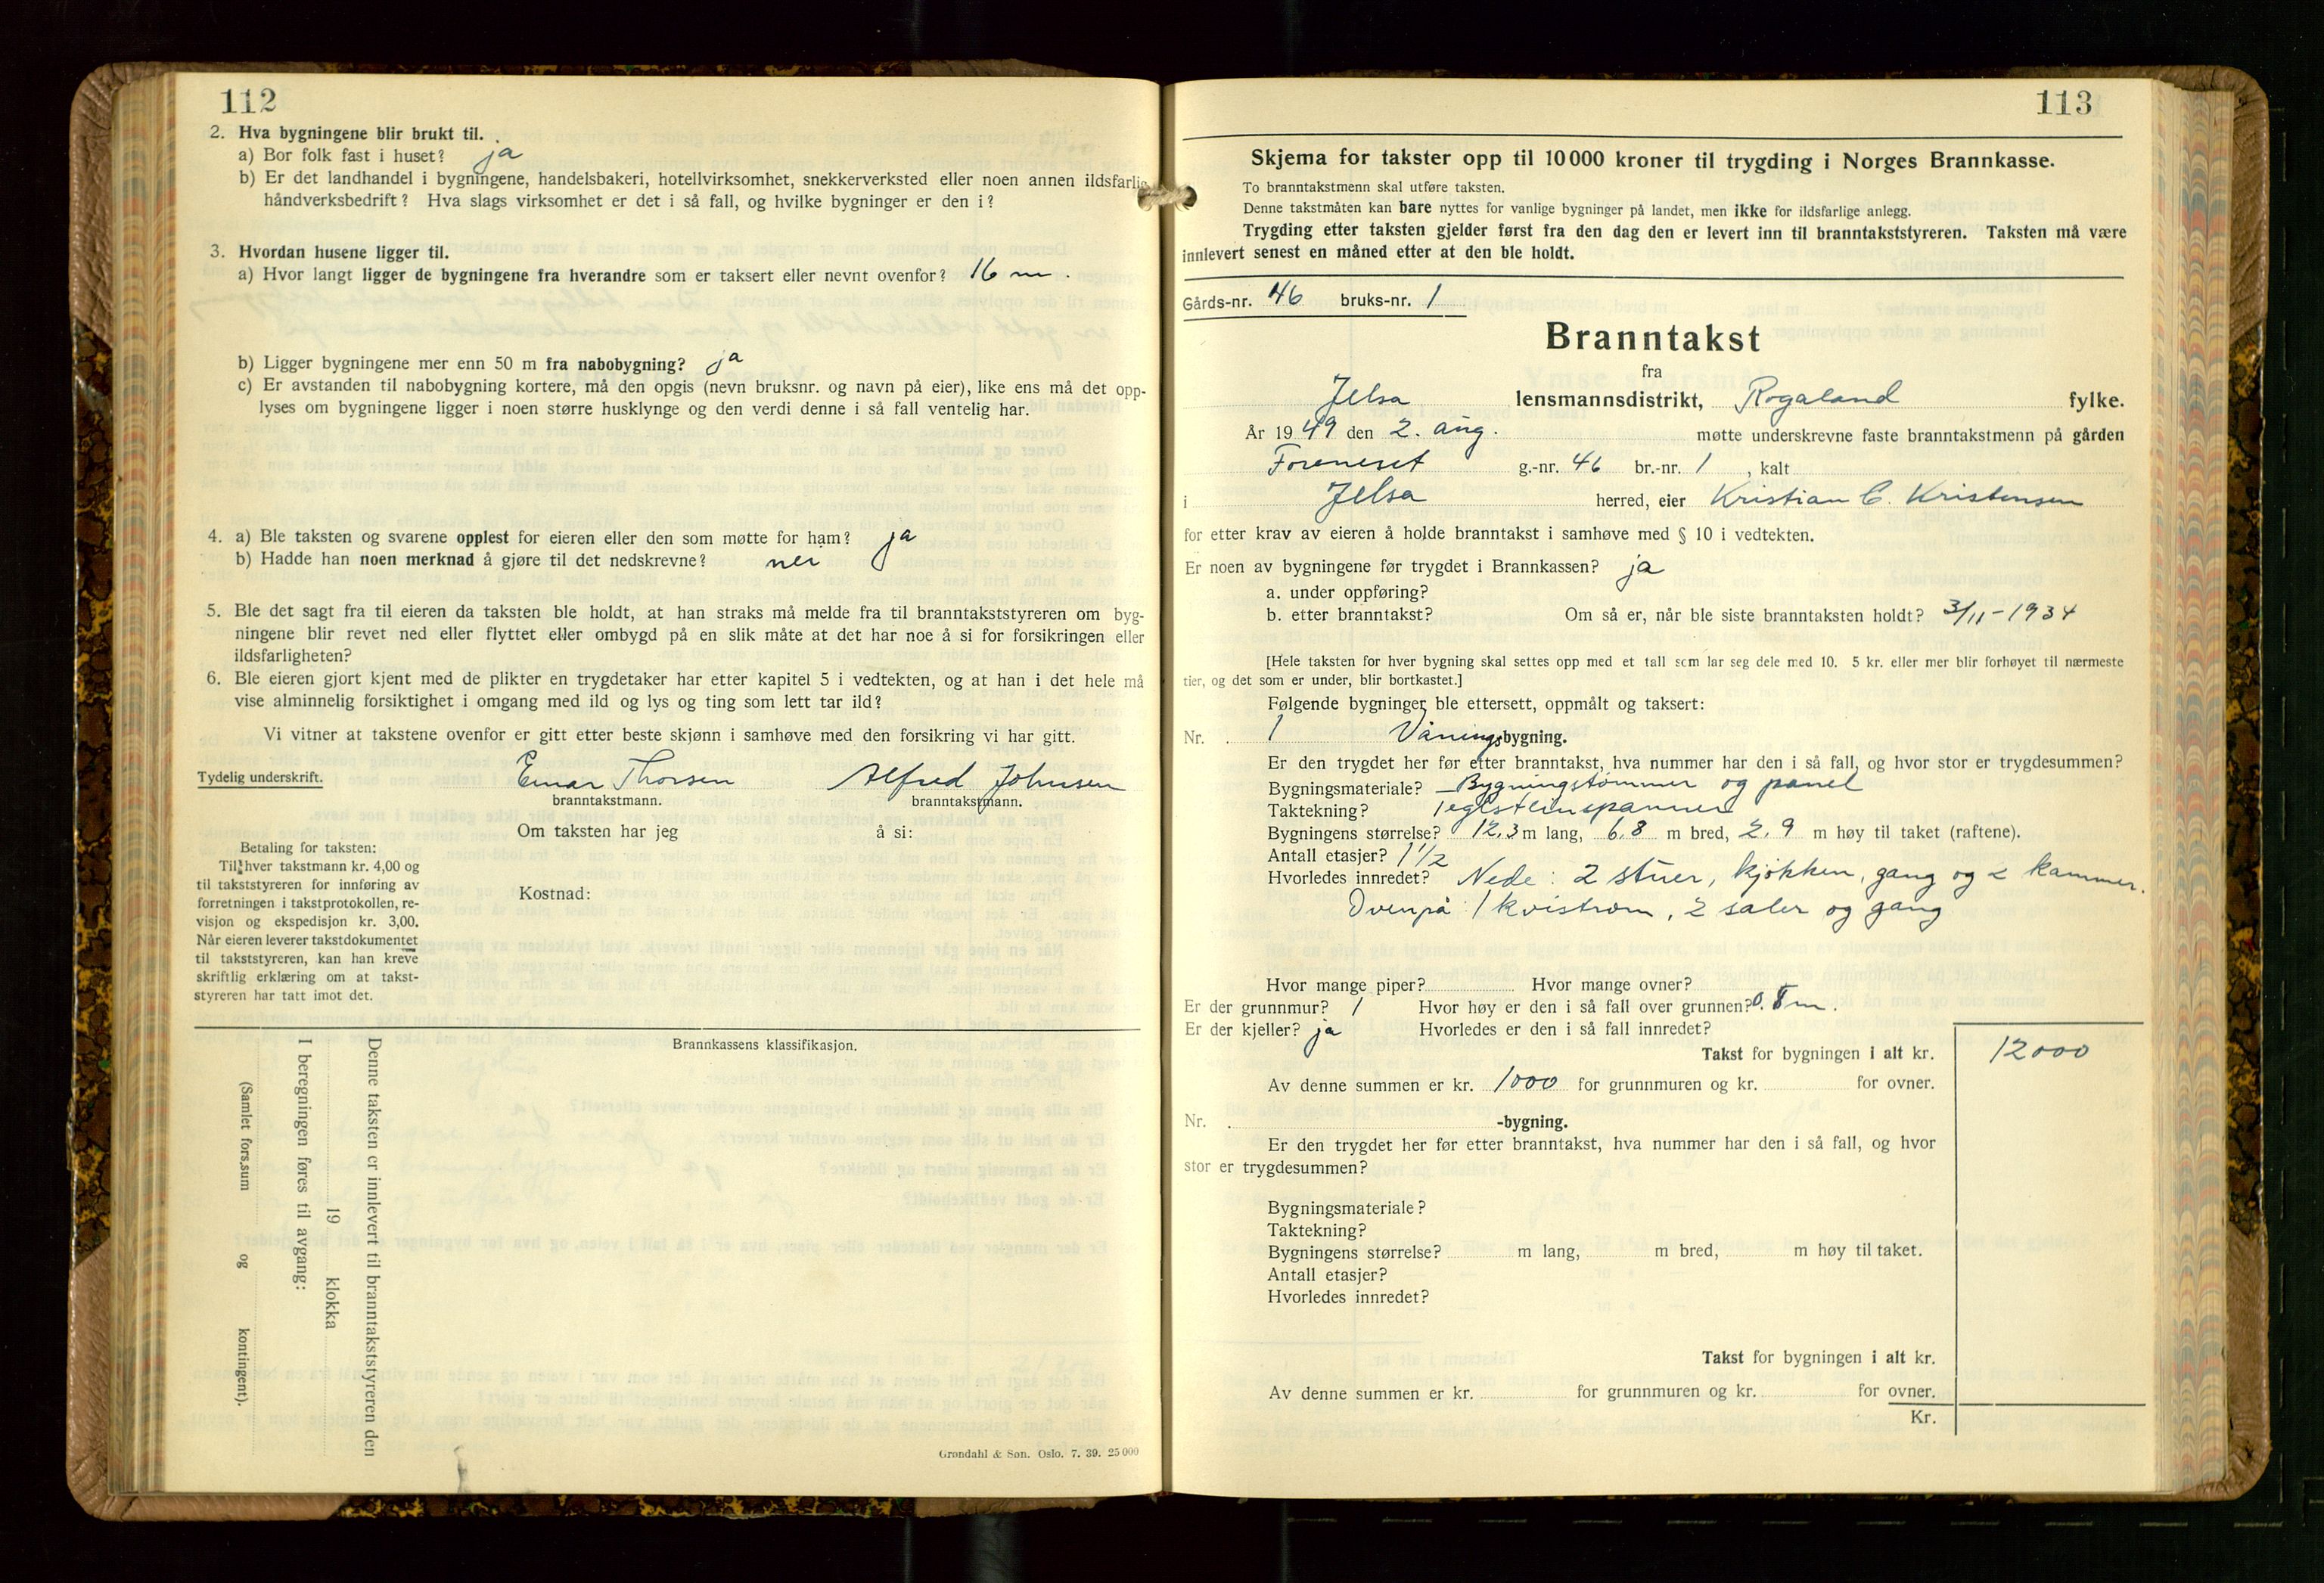 112
2. Hva bygningene blir brukt til.
a) Bor folk fast i huset? ja
b) Er det landhandel i bygningene, handelsbakeri, hotellvirksomhet, snekkerverksted eller noen annen ildsfarlig
håndverksbedrift? Hva slags virksomhet er det i så fall, og hvilke bygninger er den i?
3. Hvordan husene ligger til.
a) Hvor langt ligger de bygningene fra hverandre som er taksert eller nevnt ovenfor? 16 m.
b) Ligger bygningene mer enn 50 m fra nabobygning? ja
c) Er avstanden til nabobygning kortere, må den opgis (nevn bruksnr. og navn på eier), like ens må det opp-
lyses om bygningene ligger i noen større husklynge og den verdi denne i så fall ventelig har.
4. a) Ble taksten og svarene opplest for eieren eller den som møtte for ham? ja
b) Hadde han noen merknad å gjøre til det nedskrevne? nei
5. Ble det sagt fra til eieren da taksten ble holdt, at han straks må melde fra til branntakststyreren om byg-
ningene blir revet ned eller flyttet eller ombygd på en slik måte at det har noe å si for forsikringen eller
ildsfarligheten?
6. Ble eieren gjort kjent med de plikter en trygdetaker har etter kapitel 5 i vedtekten, og at han i det hele må
vise alminnelig forsiktighet i omgang med ild og lys og ting som lett tar ild?
Vi vitner at takstene ovenfor er gitt etter beste skjønn i samhøve med den forsikring vi har gitt.
Tydelig underskrift. Einar Thorsen Alfred Johnsen
branntakstmann. branntakstmann.
Om taksten har jeg å si:
Betaling for taksten:
Til hver takstmann kr. 4,00 og
til takststyreren for innføring av
forretningen i takstprotokollen, re-
visjon og ekspedisjon kr. 3,00.
Når eieren leverer takstdokumentet
til takststyreren, kan han kreve
skriftlig erklæring om at takst-
styreren har tatt imot det.
Kostnad:
Brannkassens klassifikasjon.
Denne taksten er innlevert til branntakststyreren den
19 klokka
I beregningen føres til avgang:
(Samlet fors.sum og kontingent).
Grøndahl & Søn. Oslo. 7. 39. 25 000
113
Skjema for takster opp til 10 000 kroner til trygding i Norges Brannkasse.
To branntakstmenn skal utføre taksten.
Denne takstmåten kan bare nyttes for vanlige bygninger på landet, men ikke for ildsfarlige anlegg.
Trygding etter taksten gjelder først fra den dag den er levert inn til branntakststyreren. Taksten må være
innlevert senest en måned etter at den ble holdt.
Gårds-nr. 46 bruks-nr. 1
Branntakst
fra
Jelsa lensmannsdistrikt, Rogaland fylke.
År 1949 den 2. aug. møtte underskrevne faste branntakstmenn på gården
Foreneset g.-nr. 46 br.-nr. 1, kalt
i Jelsa herred, eier Kristian C. Kristensen
for etter krav av eieren å holde branntakst i samhøve med § 10 i vedtekten.
Er noen av bygningene før trygdet i Brannkassen? ja
a. under oppføring?
b. etter branntakst? Om så er, når ble siste branntaksten holdt? 3/11-1934
[Hele taksten for hver bygning skal settes opp med et tall som lar seg dele med 10. 5 kr. eller mer blir forhøyet til nærmeste
tier, og det som er under, blir bortkastet.]
Følgende bygninger ble ettersett, oppmålt og taksert:
Nr. 1 Vånings-bygning.
Er den trygdet her før etter branntakst, hva nummer har den i så fall, og hvor stor er trygdesummen?
Bygningsmateriale? Bygningstømmer og panel
Taktekning? Teglsteinspanner
Bygningens størrelse? 12,3 m lang, 6,8 m bred, 2,9 m høy til taket (raftene).
Antall etasjer? 1 1/2
Hvorledes innredet? Nede: 2 stuer, kjøkken, gang og 2 kammer.
Ovenpå: 1 kvistrom, 2 saler og gang
Hvor mange piper? Hvor mange ovner?
Er der grunnmur? 1 Hvor høy er den i så fall over grunnen? 0.8 m.
Er der kjeller? ja Hvorledes er den i så fall innredet?
Takst for bygningen i alt kr. 12000
Av denne summen er kr. 1000 for grunnmuren og kr. for ovner.
Nr. -bygning.
Er den trygdet her før etter branntakst, hva nummer har den i så fall, og hvor
stor er trygdesummen?
Bygningsmateriale?
Taktekning?
Bygningens størrelse? m lang, m bred, m høy til taket.
Antall etasjer?
Hvorledes innredet?
Takst for bygningen i alt kr.
Av denne summen er kr. for grunnmuren og kr. for ovner.
Kr.